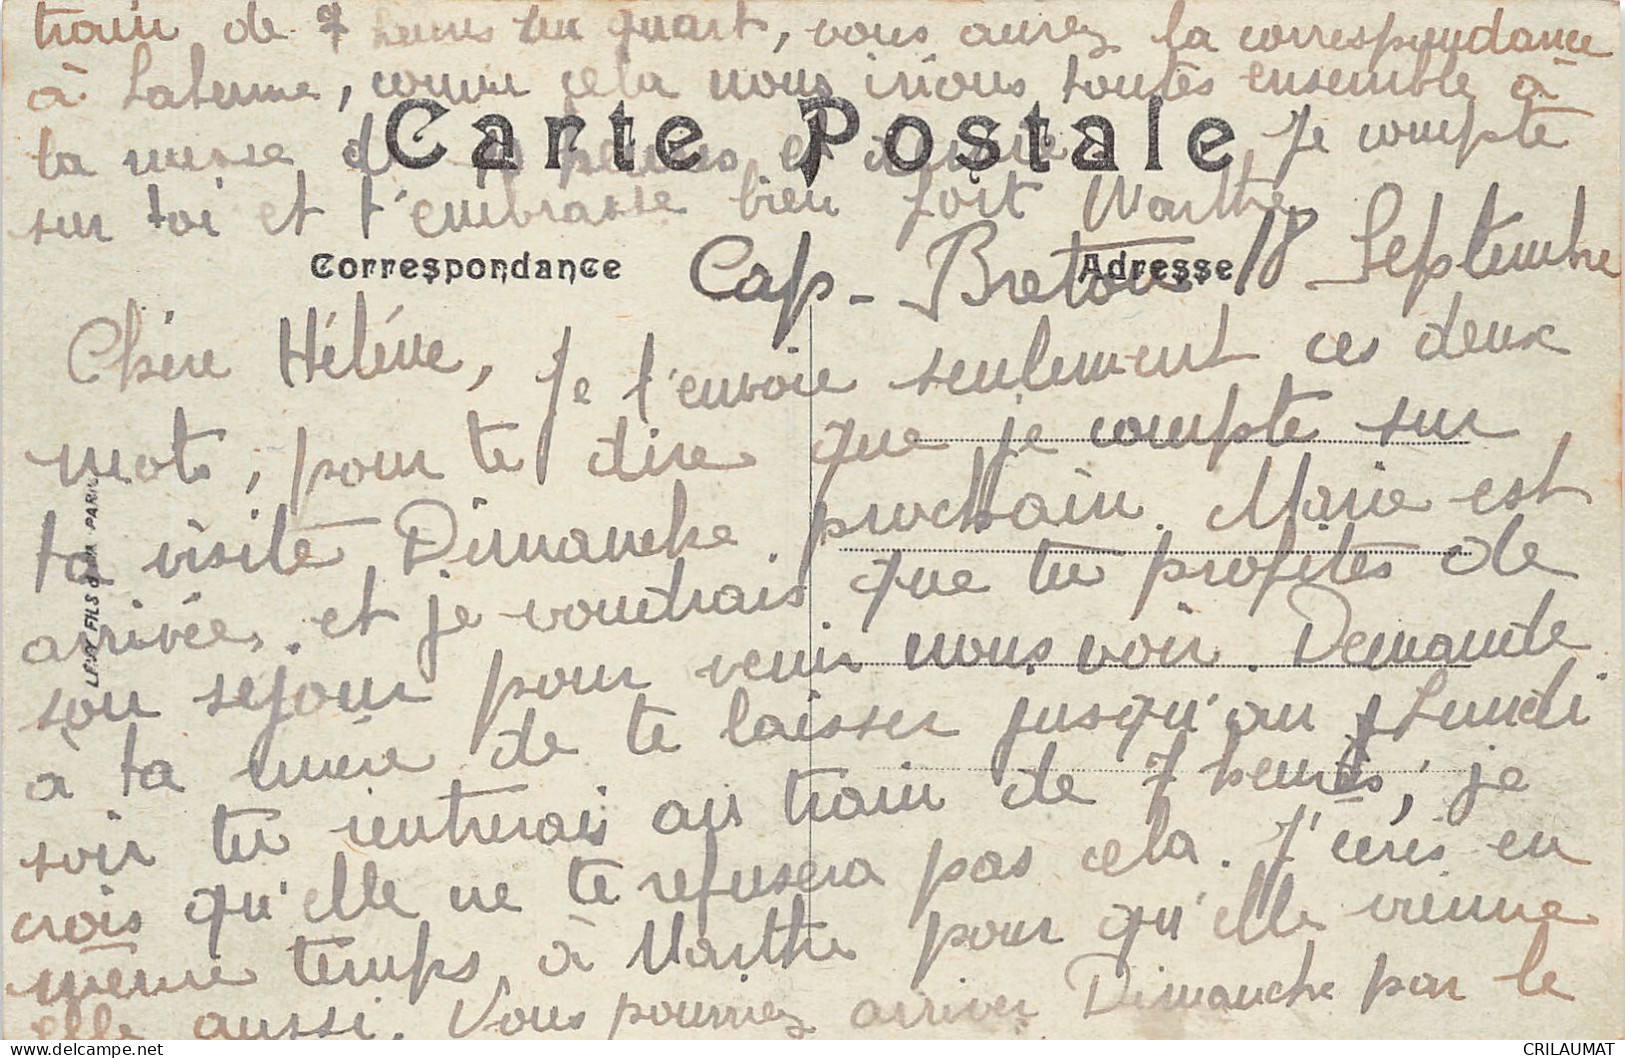 train de 7 heures un quart, vous aurez la correspondance
à Labenne, comme cela nous irions toutes ensemble à
la messe de heures et demie. Je compte
sur toi et t'embrasse bien fort Marthe
Carte Postale
Correspondance
Adresse
Cap-Breton 18 Septembre
Chère Hélène, Je t'envoie seulement ces deux
mots, pour te dire que je compte sur
ta visite Dimanche prochain. Marie est
arrivée, et je voudrais que tu profites de
son séjour pour venir nous voir. Demande
à ta mère de te laisser jusqu'au Lundi
soir tu rentrerais au train de 7 heures, je
crois qu'elle ne te refusera pas cela. J'écris en
même temps à Marthe pour qu'elle vienne
elle aussi. Vous pourriez arriver Dimanche par le
LEVY FILS PARIS
CRILAUMAT